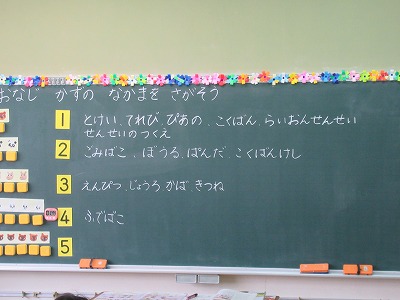 おなじ かずの なかまを さがそう
1 とけい、てれび、ぴあの、こくばん、らいおんせんせい
せんせいのつくえ
2 ごみばこ、ぼうる、ぱんだ、こくばんけし
3 えんぴつ、じょうろ、かば、きつね
4 ふでばこ
5